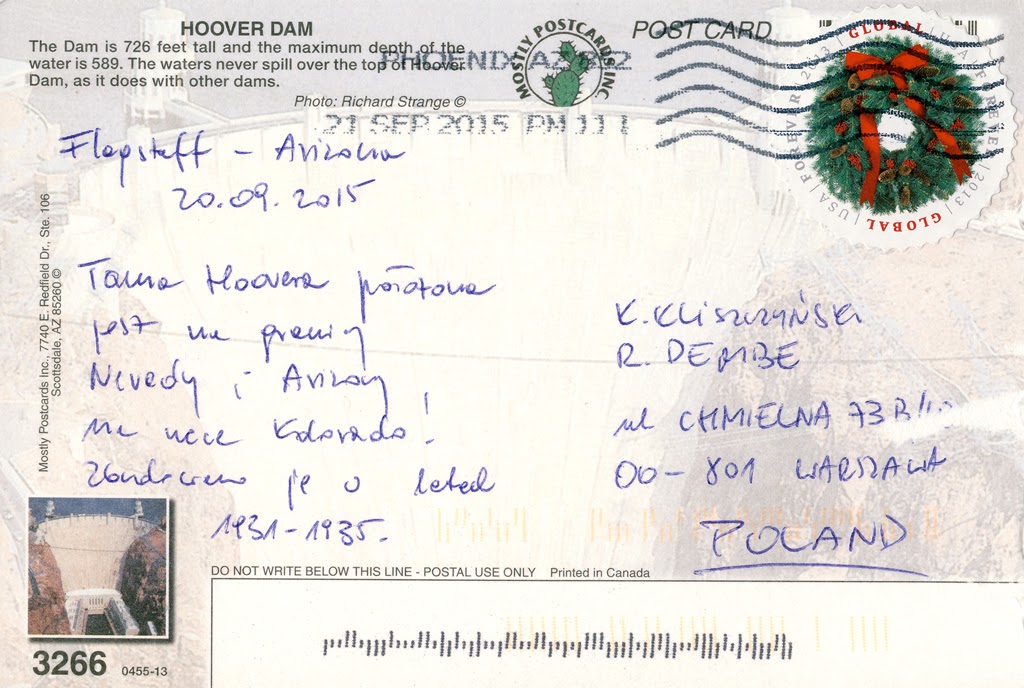 HOOVER DAM
The Dam is 726 feet tall and the maximum depth of the
water is 589. The waters never spill over the top of Hoover
Dam, as it does with other dams.
Photo: Richard Strange ©
MOSTLY POSTCARDS INC
POST CARD
PHOENIX AZ 852
21 SEP 2015 PM 11 L
GLOBAL
USA | FOREVER | 2013
GLOBAL
Flagstaff - Arizona
20.09.2015
Tama Hoovera położona
jest na granicy
Nevady i Arizony
na rzece Kolorado!
Zbudowano ją w latach
1931-1935.
K. KLISZCZYŃSKI
R. DEMBE
ul CHMIELNA 73B/
00-801 WARSZAWA
POLAND
Mostly Postcards Inc., 7740 E. Redfield Dr., Ste. 106
Scottsdale, AZ 85260 ©
DO NOT WRITE BELOW THIS LINE - POSTAL USE ONLY Printed in Canada
3266 0455-13